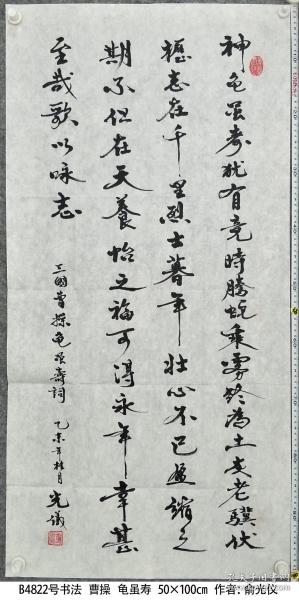 神龟虽寿犹有竟時腾蛇乘雾终為土灰老骥伏
枥志在千里烈士暮年壮心不已盈缩之
期不但在天養怡之福可得永年幸甚
至哉歌以咏志
三國曹操龟虽寿詞
乙未年桂月 光儀
B4822号书法 曹操 龟虽寿 50×100cm 作者:俞光仪